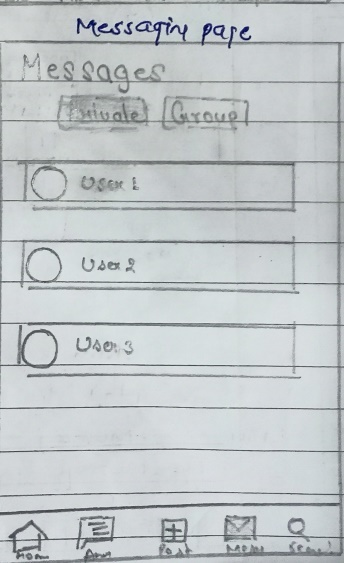 Messaging page
Messages
Private Group
User 1
User 2
User 3
Home Ann Post Search